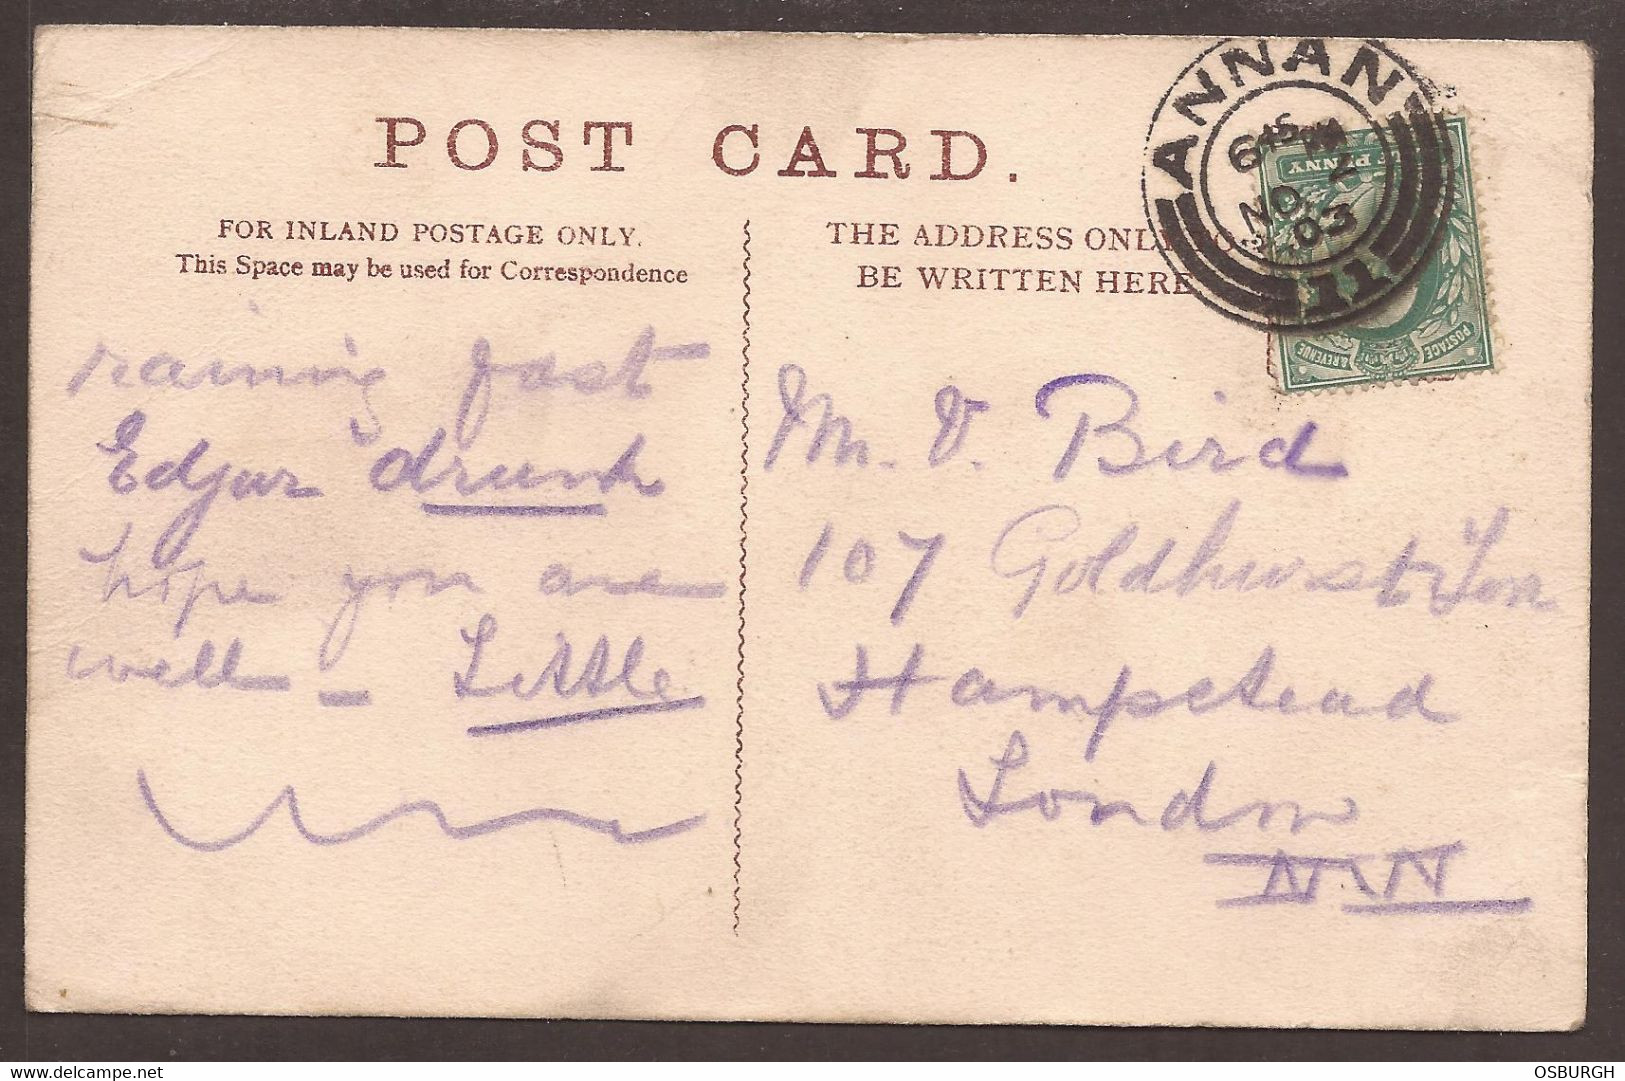 POST CARD.
FOR INLAND POSTAGE ONLY.
This Space may be used for Correspondence
THE ADDRESS ONLY TO
BE WRITTEN HERE
ANNAN
6 15 PM
NO 2
03
11
HALF PENNY
POSTAGE & REVENUE
raining fast
Edgar drunk
hope you are
well - Little
M. V. Bird
107 Goldhurst Ter
Hampstead
London
N.W
www.delcampe.net
OSBURGH